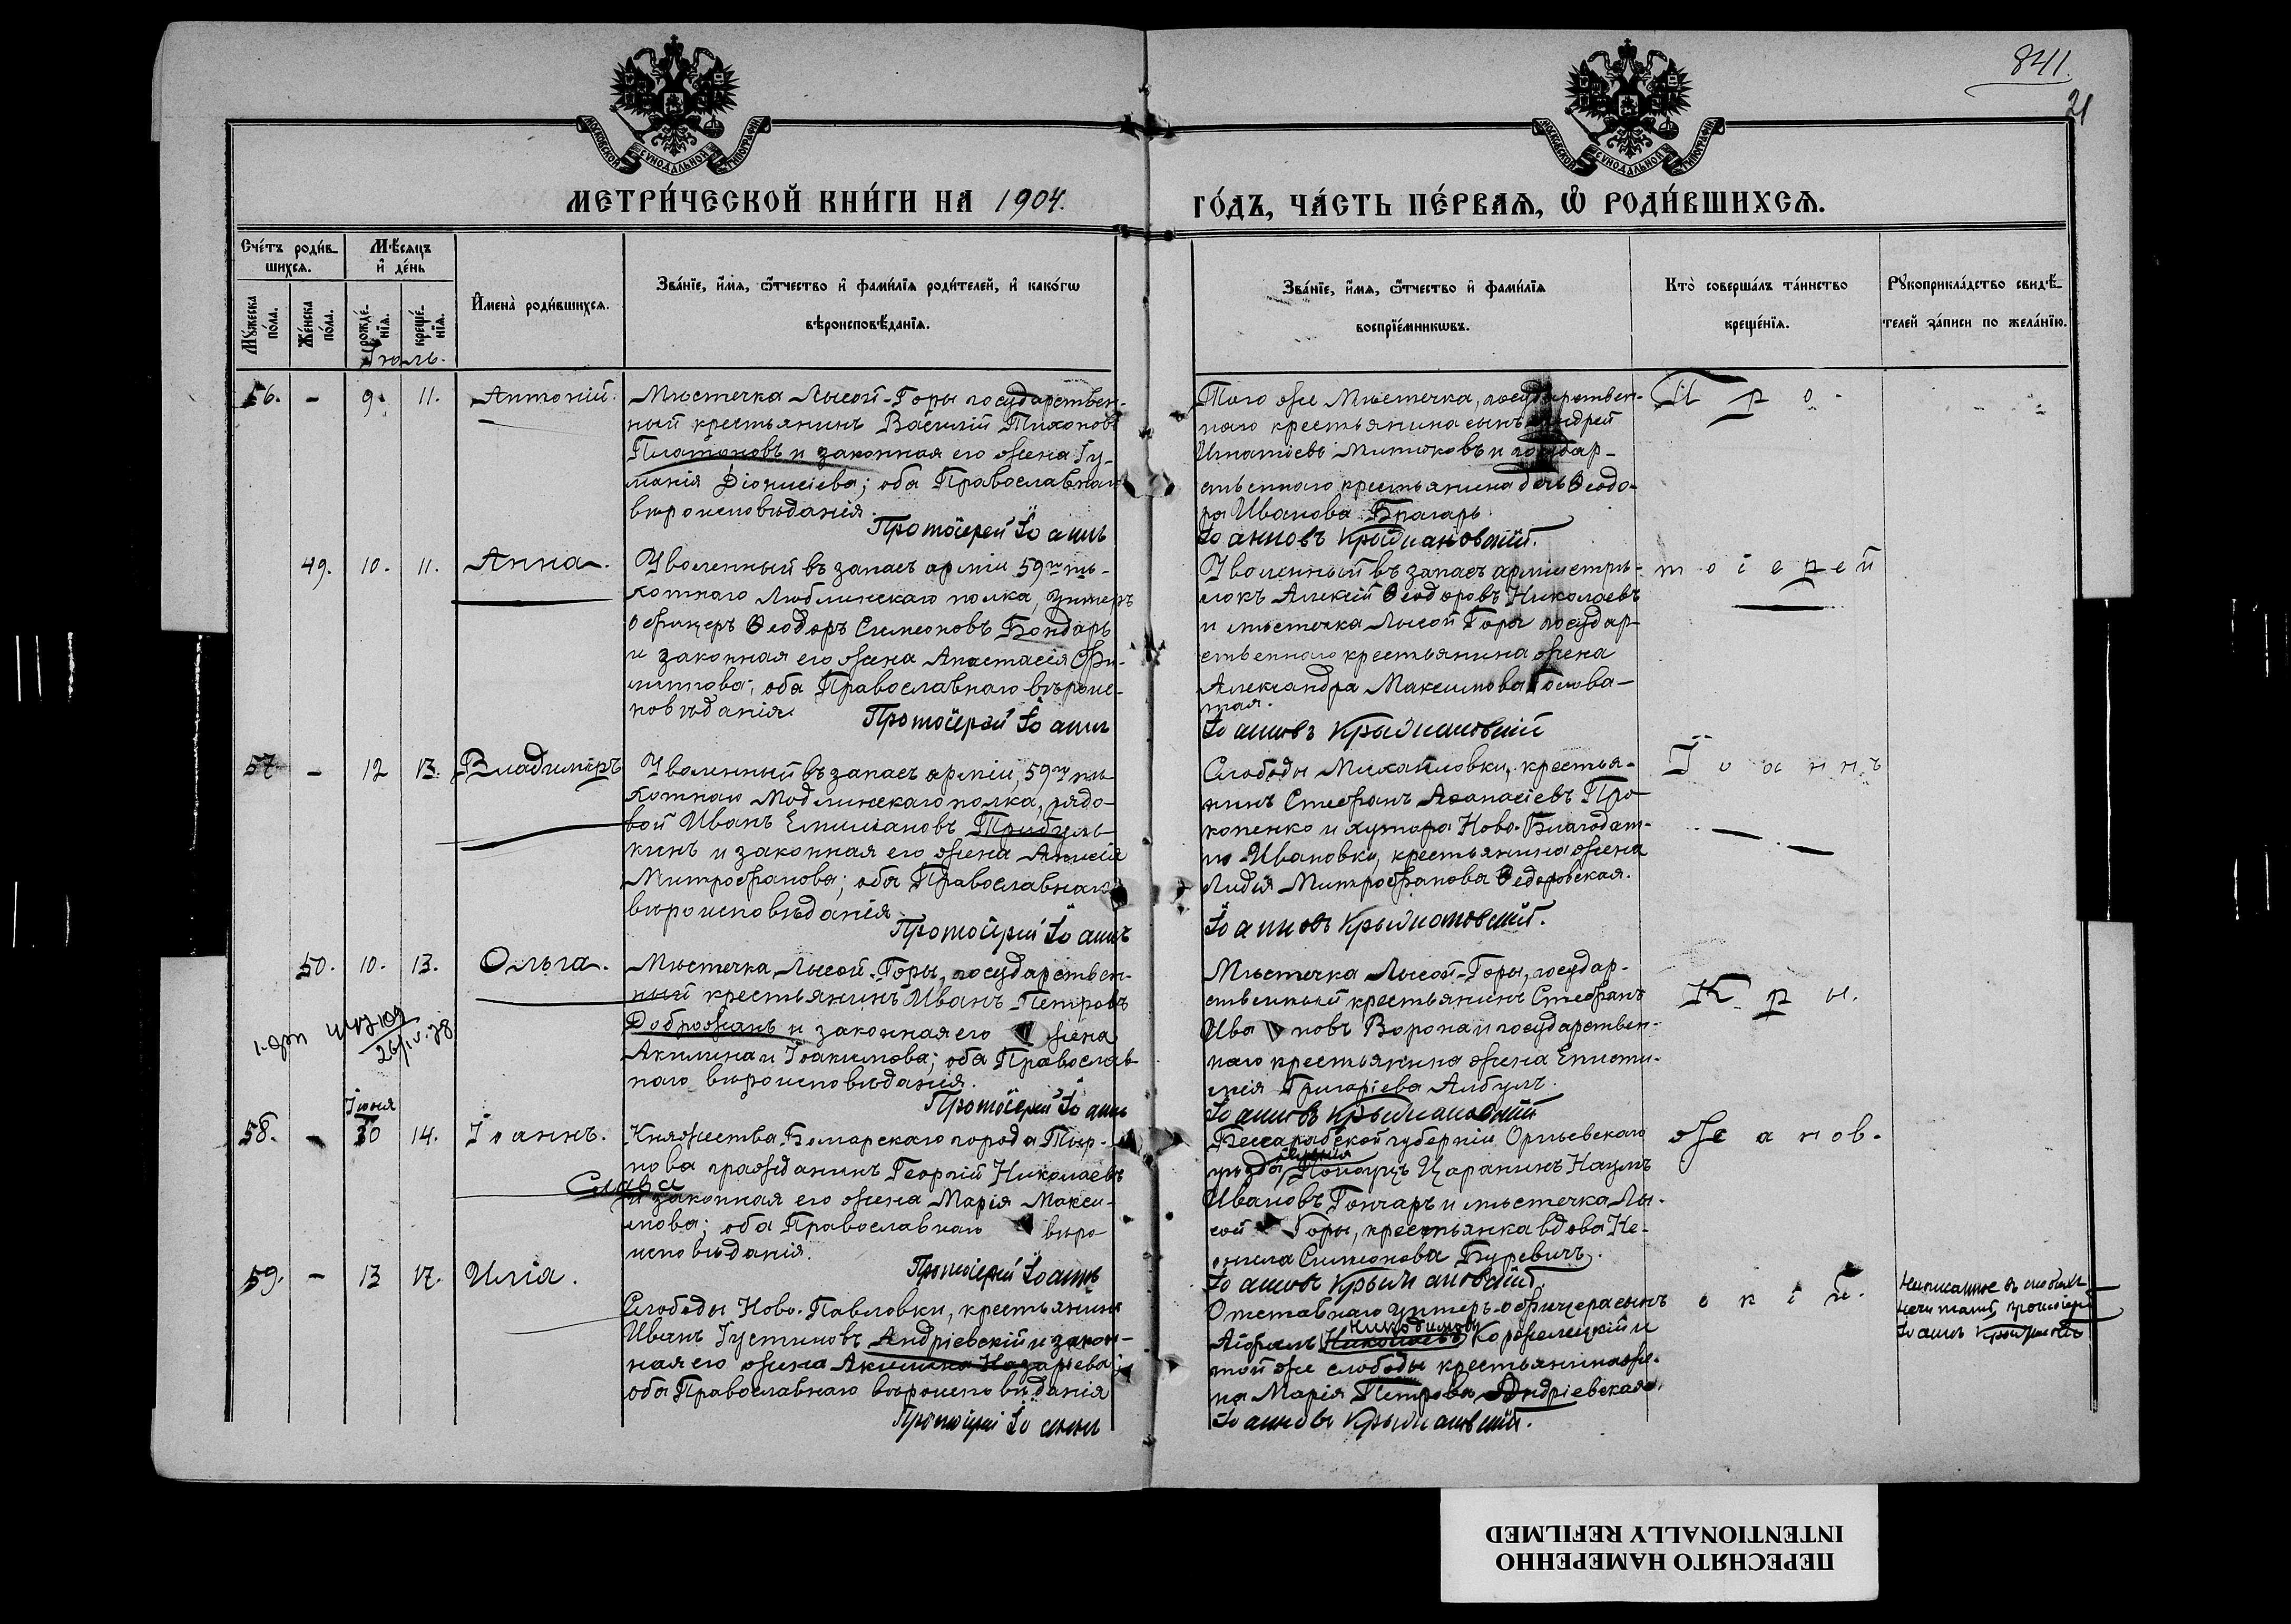 841.
21
МОСКОВСКОЙ СУНОДАЛЬНОЙ ТИПОГРАФІИ
МОСКОВСКОЙ СУНОДАЛЬНОЙ ТИПОГРАФІИ
МЕТРИ́ЧЕСКОЙ КНИ́ГИ НА 1904. ГО́ДЪ, ЧА́СТЬ ПЕ́РВАѦ, Ѽ РОДИ́ВШИХСѦ.
Сче́тъ роди́в-
шихсѧ.
Мѣ́сѧцъ
и҆ де́нь
Мꙋ́жеска по́ла.
Же́нска по́ла.
рожде́-нїѧ.
креще́-нїѧ.
И҆мена̀ роди́вшихсѧ.
Зва́нїе, и҆́мѧ, ѻ҆́тчество и҆ фами́лїѧ роди́телей, и҆ како́гѡ
вѣроисповѣ́данїѧ.
Зва́нїе, и҆́мѧ, ѻ҆́тчество и҆ фами́лїѧ
воспрїе́мникѡвъ.
Кто̀ соверша́лъ та́инство
креще́нїѧ.
Рꙋкоприкла́дство свидѣ́-
телей за́писи по жела́нїю.
Іюль.
56. - 9. 11. Антоній.
Мѣстечка Лысой-Горы государствен-
ный крестьянинъ Василій Тихоновъ
Платоновъ и законная его жена Гу-
манія Діонисіева; оба Православнаго
вѣроисповѣданія.
Протоіерей Іоаннъ
Того же Мѣстечка, государствен-
наго крестьянина сынъ Андрей
Игнатіевъ Митюковъ и государ-
ственнаго крестьянина дочь Ѳеодо-
ра Иванова Брагарь.
Іоанновъ Крыжановскій.
П р о -
49. 10. 11. Анна.
Уволенный въ запасъ арміи 59го пѣ-
хотнаго Люблинскаго полка, Унтеръ
офицеръ Ѳеодоръ Симеоновъ Бондарь
и законная его жена Анастасія Фи-
липпова; оба Православнаго вѣроис-
повѣданія.
Протоіерей Іоаннъ
Уволенный въ запасъ арміи стрѣ-
локъ Алексій Ѳеодоровъ Николаевъ
и мѣстечка Лысой Горы государ-
ственнаго крестьянина жена
Александра Максимова Голова-
тая.
Іоанновъ Крыжановскій
т о і е р е й
57. - 12 13. Владиміръ
Уволенный въ запасъ арміи, 59го пѣ-
хотнаго Модлинскаго полка, рядо-
вой Иванъ Емиліановъ Трибуль-
кинъ и законная его жена Анисія
Митрофанова; оба Православнаго
вѣроисповѣданія.
Протоіерей Іоаннъ
Слободы Михайловки, крестья-
нинъ Стефанъ Аѳанасіевъ Про-
копенко и хутора Ново-Благодат-
но-Ивановки, крестьянина жена
Лидія Митрофанова Ѳедоровская.
Іоанновъ Крыжановскій.
І о а н н ъ
50. 10. 13. Ольга.
Мѣстечка Лысой-Горы, государствен-
ный крестьянинъ Иванъ Петровъ
Доброжанъ и законная его жена
Акилина Іоакимова; оба Православ-
наго вѣроисповѣданія.
Протоіерей Іоаннъ
Мѣстечка Лысой-Горы, государ-
ственный крестьянинъ Стефанъ
Ивановъ Ворона и государствен-
наго крестьянина жена Еписти-
мія Григоріева Албулъ.
Іоанновъ Крыжановскій
К р ы.
26/IV.38
Іюня
58. - 30 14. Іоаннъ.
Княжества Болгарскаго города Тыр-
нова гражданинъ Георгій Николаевъ
Слава
и законная его жена Марія Макси-
мова; оба Православнаго вѣро-
исповѣданія.
Протоіерей Іоаннъ
Бессарабской губерніи Оргѣевскаго
уѣзда, Попоуцъ Царанинъ Наумъ
Ивановъ Гончаръ и мѣстечка Лы-
сой Горы, крестьянка вдова Не-
онила Симеонова Буревичъ.
Іоанновъ Крыжановскій.
ж а н о в -
59. - 13 17. Илія.
Слободы Ново-Павловки, крестьянинъ
Иванъ Іустиновъ Андріевскій и закон-
ная его жена Акилина Назаріева;
оба Православнаго вѣроисповѣданія
Протоіерей Іоаннъ
Отставнаго Унтеръ-офицера сынъ
Никодимовъ
Николаевъ Корженецкій и
той же слободы крестьянина же-
на Марія Петрова Андріевская.
Іоанновъ Крыжановскій.
с к і й.
Написанное въ скобкахъ
протоіерей
Іоаннъ
ПЕРЕСНЯТО НАМЕРЕННО
INTENTIONALLY REFILMED